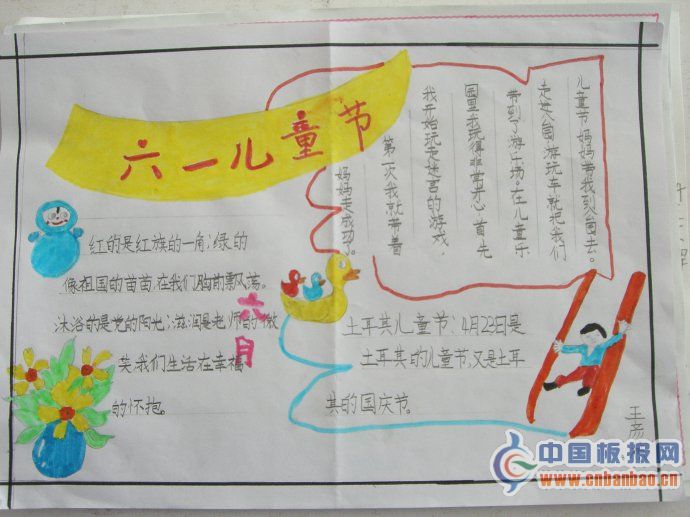 六一儿童节
红的是红族的一角;绿的
像祖国的苗苗,在我们胸前飘荡。
沐浴的是党的阳光;滋润是老师的微
笑,我们生活在幸福
的怀抱。
六月
儿童节妈妈带我到公园去。
走进公园游玩车就把我们
带到了游乐场。在儿童乐
园里我玩得非常开心 首先
我开始玩走迷宫的游戏.
第一次我就带着
妈妈走成功了。
土耳其儿童节:4月23日是
土耳其的儿童节,又是土耳
其的国庆节。
王
中国板报网
www.cnbanbao.cn